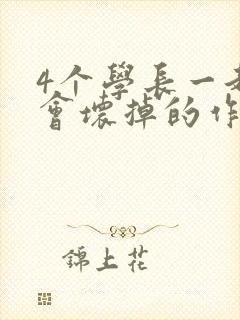 4个學長一
會壞掉的作
錦上花